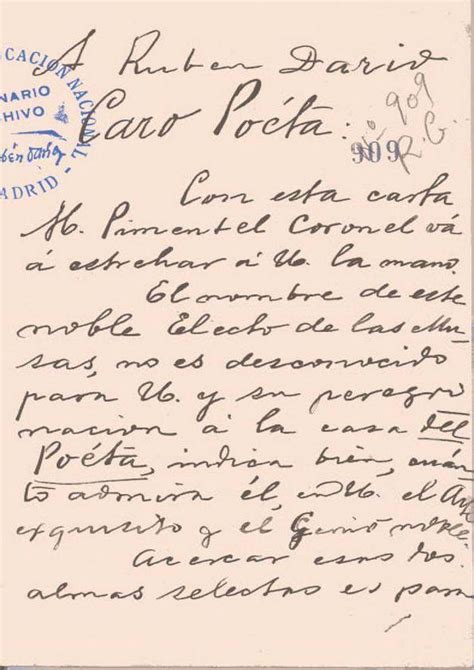 A Ruben Dario
Caro Poéta:
CACION NACIONAL
NARIO
HIVO
ADRID
No 909
909
R. G.
Con esta carta
M. Pimentel Coronel vá
á estrechar á U. la mano.
El nombre de este
noble Electo de las Mu
sas, no es desconocido
para U. y su peregri
nacion á la casa del
Poéta, indica bien, cuán
to admira él, en U. el Arte
exquisito y el Genio noble.
Acercar esas dos
almas selectas es para